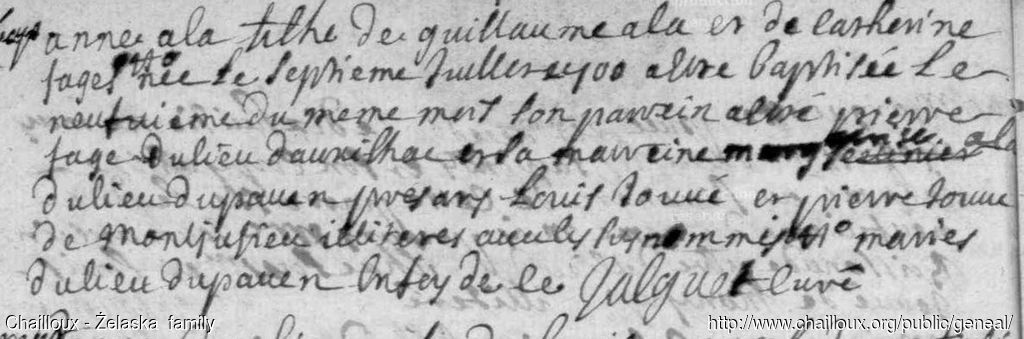 anne ala filhe de guillaume ala et de catherine
fages née le septieme Juillet 1700 a été baptisée le
neufuieme du meme mois son parrein a été pierre
fage du lieu daurilhac et sa marreine ala
du lieu du pauen presans Louis touue et pierre touue
de montjusieu illiteres auec les susnommes maries
du lieu du pauen en foy de ce Jalguet curé
Chailloux - Żelaska family
http://www.chailloux.org/public/geneal/